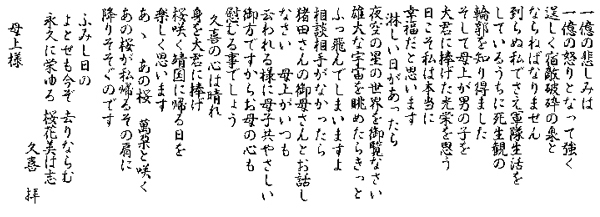 一億の悲しみは
一億の怒りとなって強く
逞しく宿敵破砕の糸と
ならねばなりません
到らぬ私でさえ軍隊生活を
しているうちに死生観の
輪郭を知り得ました
そして母上が男の子を
大君に捧げた光栄を思う
日こそ私は本当に
幸福だと思います
淋しい日があったら
夜空の星の世界を御覧なさい
雄大な宇宙を眺めたらきっと
ふっ飛んでしまいますよ
相談相手がなかったら
猪田さんの御母さんとお話し
なさい 母上がいつも
云われる様に母子共やさしい
御方ですからお母の心も
慰むる事でしょう
久喜の心は晴れ
身を大君に捧げ
桜咲く靖国に帰る日を
楽しく思います
あゝ あの桜 萬朶と咲く
あの桜が私帰るその肩に
降りそそぐのです
ふみし日の
よとせも今ぞ 去りならむ
永久に栄ゆる 桜花美はし志
久喜 拝
母上様